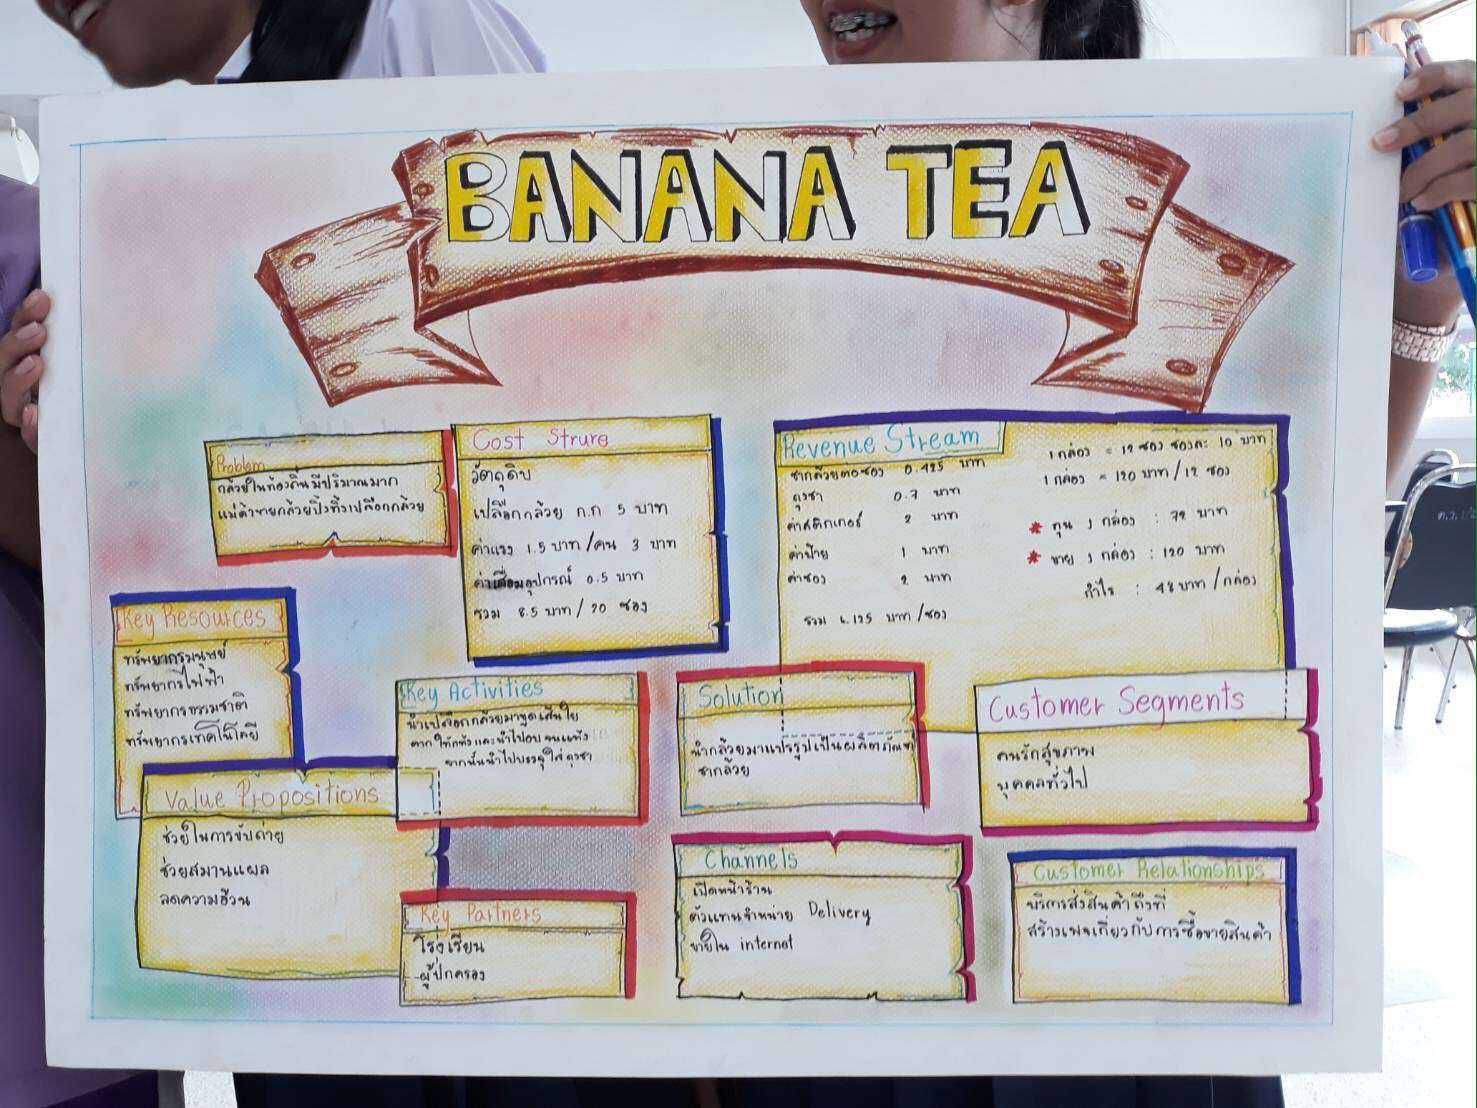 BANANA TEA
Problem
กล้วยในท้องถิ่นมีปริมาณมาก
แม่ค้าขายกล้วยปิ้งทิ้งเปลือกกล้วย
Cost Strure
วัตถุดิบ
เปลือกกล้วย ก.ก 5 บาท
ค่าแรง 1.5 บาท/คน 3 บาท
อุปกรณ์ 0.5 บาท
รวม 8.5 บาท/20 ซอง
Revenue Stream
ชากล้วยต่อซอง 0.425 บาท
ถุงชา 0.7 บาท
ค่าสติกเกอร์ 2 บาท
ค่าป้าย 1 บาท
ค่าซอง 2 บาท
รวม 6.125 บาท/ซอง
1 กล่อง = 12 ซอง ซองละ 10 บาท
1 กล่อง = 120 บาท/12 ซอง
* ทุน 1 กล่อง : 72 บาท
* ขาย 1 กล่อง : 120 บาท
กำไร : 48 บาท/กล่อง
Key Resources
ทรัพยากรมนุษย์
ทรัพยากรไฟฟ้า
ทรัพยากรธรรมชาติ
ทรัพยากรเทคโนโลยี
Key Activities
นำเปลือกกล้วยมาขูดเส้นใย
ตากให้แห้งและนำไปอบจนแห้ง
จากนั้นนำไปบรรจุใส่ถุงชา
Solution
นำกล้วยมาแปรรูปเป็นผลิตภัณฑ์
ชากล้วย
Customer Segments
คนรักสุขภาพ
บุคคลทั่วไป
Value Propositions
ช่วยในการขับถ่าย
ช่วยสมานแผล
ลดความอ้วน
Key Partners
โรงเรียน
ผู้ปกครอง
Channels
เปิดหน้าร้าน
ตัวแทนจำหน่าย Delivery
ขายใน internet
Customer Relationships
บริการส่งสินค้าถึงที่
สร้างเพจเกี่ยวกับการซื้อขายสินค้า